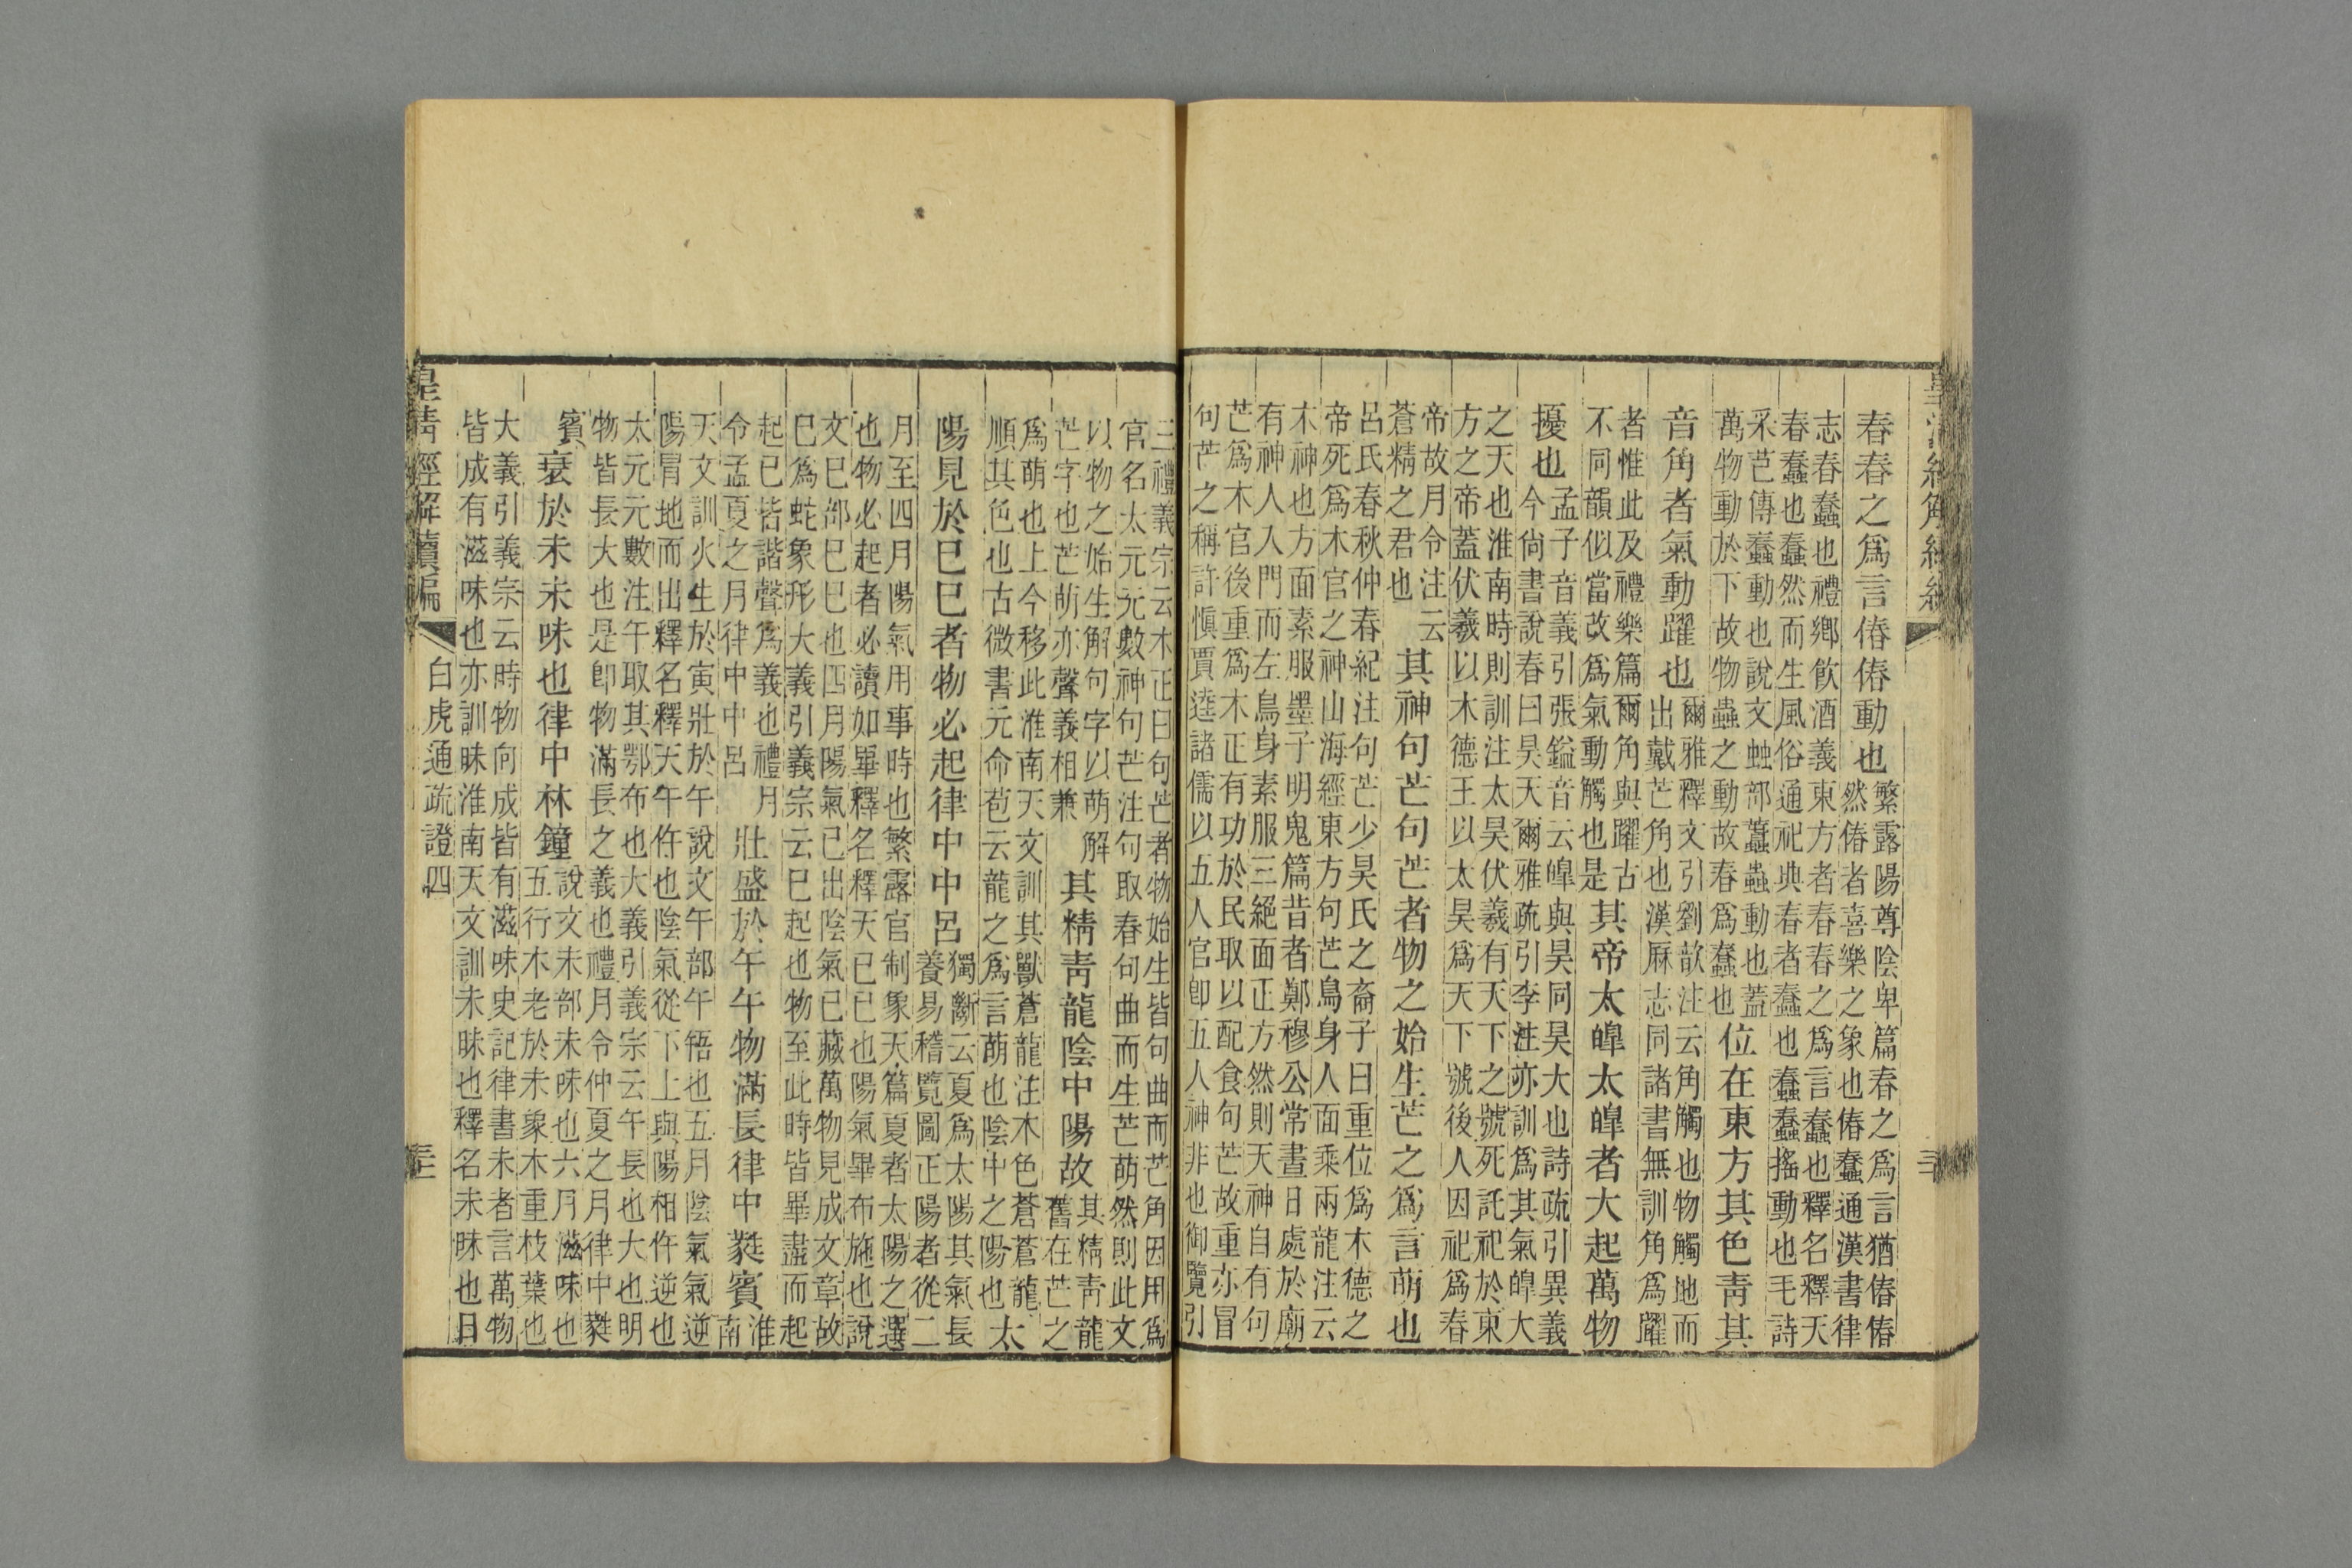 春春之爲言偆偆動也
繁露陽尊陰卑篇春之爲言猶偆偆
然偆者喜樂之象也偆蠢通漢書律
志春蠢也禮鄉飲酒義東方者春春之爲言蠢也釋名釋天
春蠢也蠢然而生風俗通祀典春者蠢也蠢蠢搖動也毛詩
采芑傳蠢動也說文䖵部蠢蟲動也蓋
萬物動於下故物蟲之動故春爲蠢也
位在東方其色靑其
音角者氣動躍也
爾雅釋文引劉歆注云角觸也物觸地而
出戴芒角也漢厤志同諸書無訓角爲躍
者惟此及禮樂篇爾角與躍古
不同韻似當改爲氣動觸也是
其帝太皥太皥者大起萬物
擾也
孟子音義引張鎰音云皥與昊同昊大也詩疏引異義
今尙書說春曰昊天爾雅疏引李注亦訓爲其氣皥大
之天也淮南時則訓注太昊伏羲有天下之號死託祀於東
方之帝蓋伏羲以木德王以太昊爲天下號後人因祀爲春
帝故月令注云
蒼精之君也
其神句芒句芒者物之始生芒之爲言萌也
呂氏春秋仲春紀注句芒少昊氏之裔子曰重位爲木德之
帝死爲木官之神山海經東方句芒鳥身人面乘兩龍注云
木神也方面素服墨子明鬼篇昔者鄭穆公常晝日處於廟
有神人入門而左鳥身素服三絕面正方然則天神自有句
芒爲木官後重爲木正有功於民取以配食句芒故重亦冒
句芒之稱許愼賈逵諸儒以五人官卽五人神非也御覽引
三禮義宗云木正曰句芒者物始生皆句曲而芒角因用爲
官名太元元數神句芒注句取春句曲而生芒萌然則此文
以物之始生解句字以萌解
芒字也芒萌亦聲義相兼
其精靑龍陰中陽故
其精靑龍
舊在芒之
爲萌也上今移此淮南天文訓其獸蒼龍注木色蒼蒼龍
順其色也古微書元命苞云龍之爲言萌也陰中之陽也
太
陽見於巳巳者物必起律中中呂
獨斷云夏爲太陽其氣長
養易稽覽圖正陽者從二
月至四月陽氣用事時也繁露官制象天篇夏者太陽之選
也物必起者必讀如畢釋名釋天巳已也陽氣畢布施也說
文巳部巳已也四月陽氣已出陰氣已藏萬物見成文章故
巳爲蛇象形大義引義宗云巳起也物至此時皆畢盡而起
起巳皆諧聲爲義也禮月
令孟夏之月律中中呂
壯盛於午午物滿長律中蕤賓
淮
南
天文訓火生於寅壯於午說文午部午啎也五月陰氣氣逆
陽冒地而出釋名釋天午仵也陰氣從下上與陽相仵逆也
太元元數注午取其鄂布也大義引義宗云午長也大也明
物皆長大也是卽物滿長之義也禮月令仲夏之月律中蕤
賓
衰於未未味也律中林鐘
說文未部未味也六月滋味也
五行木老於未象木重枝葉也
大義引義宗云時物向成皆有滋味史記律書未者言萬物
皆成有滋味也亦訓昧淮南天文訓未昧也釋名未昧也日
皇清經解續編
白虎通疏證四